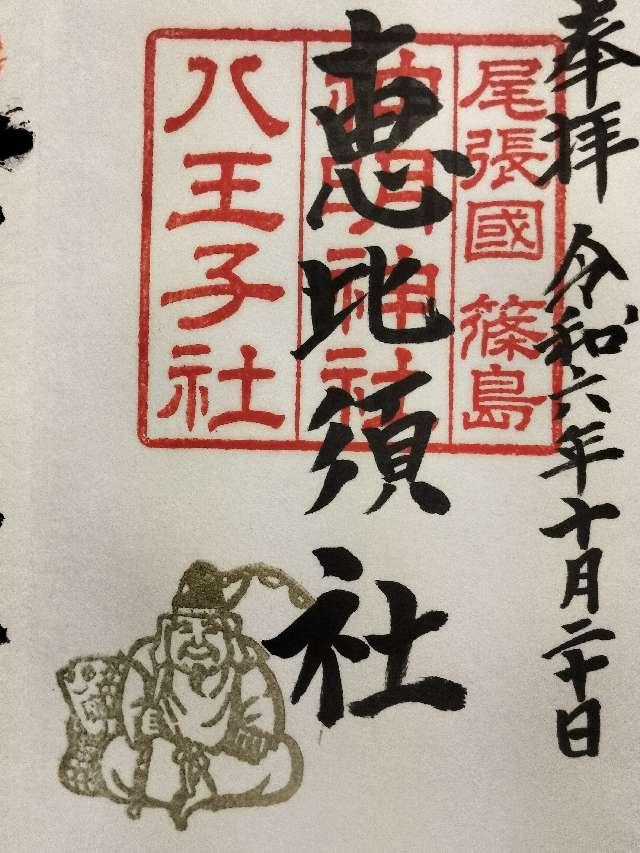 奉拝 令和六年十月二十日
尾張國 篠島
神明神社
八王子社
恵比須社